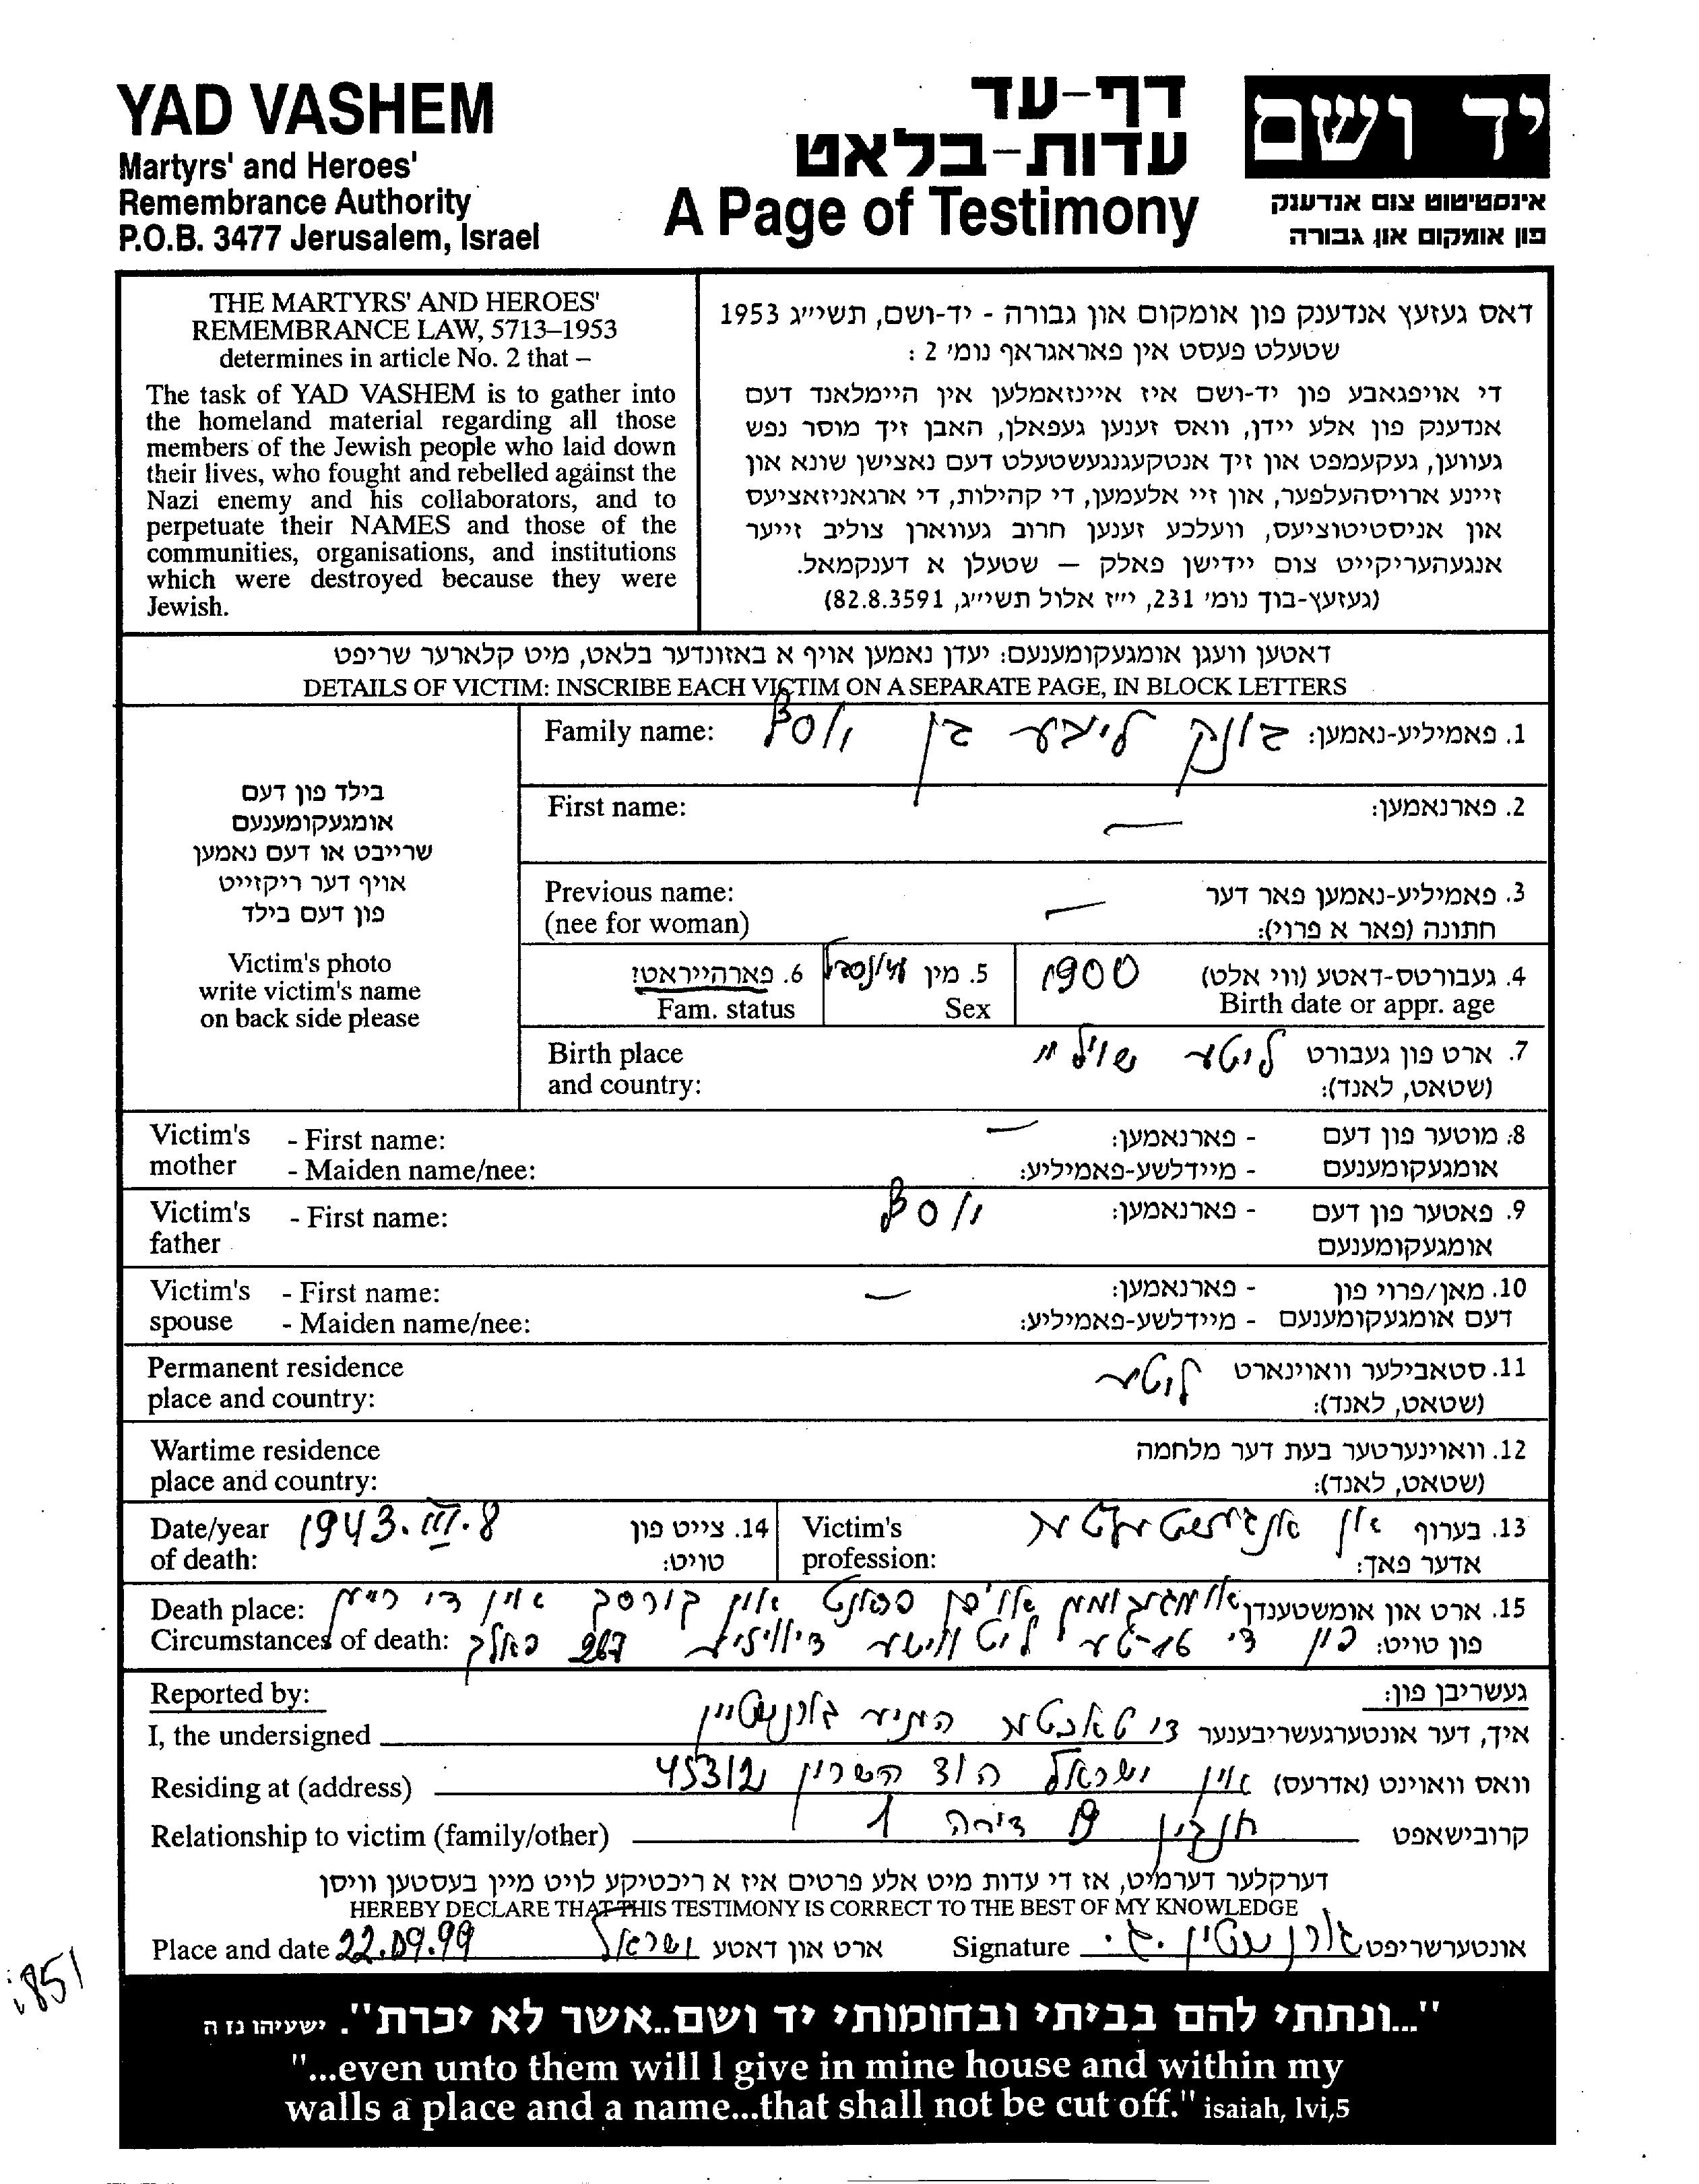 YAD VASHEM
Martyrs' and Heroes'
Remembrance Authority
P.O.B. 3477 Jerusalem, Israel
דף-עד
עדות-בלאט
A Page of Testimony
יד ושם
אינסטיטוט צום אנדענק
פון אומקום און גבורה
THE MARTYRS' AND HEROES'
REMEMBRANCE LAW, 5713–1953
determines in article No. 2 that –
The task of YAD VASHEM is to gather into
the homeland material regarding all those
members of the Jewish people who laid down
their lives, who fought and rebelled against the
Nazi enemy and his collaborators, and to
perpetuate their NAMES and those of the
communities, organisations, and institutions
which were destroyed because they were
Jewish.
דאס געזעץ אנדענק פון אומקום און גבורה - יד-ושם, תשי״ג 1953
שטעלט פעסט אין פאראגראף נומ׳ 2 :
די אויפגאבע פון יד-ושם איז איינזאמלען אין היימלאנד דעם
אנדענק פון אלע יידן, וואס זענען געפאלן, האבן זיך מוסר נפש
געווען, געקעמפט און זיך אנטקעגנגעשטעלט דעם נאצישן שונא און
זיינע ארויסהעלפער, און זיי אלעמען, די קהילות, די ארגאניזאציעס
און אניסטיטוציעס, וועלכע זענען חרוב געווארן צוליב זייער
אנגעהעריקייט צום יידישן פאלק — שטעלן א דענקמאל.
(געזעץ-בוך נומ׳ 231, י״ז אלול תשי״ג, 82.8.3591)
דאטען וועגן אומגעקומענעם: יעדן נאמען אויף א באזונדער בלאט, מיט קלארער שריפט
DETAILS OF VICTIM: INSCRIBE EACH VICTIM ON A SEPARATE PAGE, IN BLOCK LETTERS
בילד פון דעם
אומגעקומענעם
שרייבט או דעם נאמען
אויף דער ריקזייט
פון דעם בילד
Victim's photo
write victim's name
on back side please
Family name: 1. פאמיליע-נאמען: בונק לייבע בן יוסף
First name: 2. פארנאמען: —
Previous name: 3. פאמיליע-נאמען פאר דער
(nee for woman) חתונה (פאר א פרוי): —
4. געבורטס-דאטע (ווי אלט) 1900
Birth date or appr. age
5. מין
Sex
6. פארהייראט?
Fam. status
Birth place 7. ארט פון געבורט ליטע
and country: (שטאט, לאנד):
Victim's - First name: 8. מוטער פון דעם - פארנאמען: —
mother - Maiden name/nee: אומגעקומענעם - מיידלשע-פאמיליע:
Victim's - First name: 9. פאטער פון דעם - פארנאמען: יוסף
father אומגעקומענעם
Victim's - First name: 10. מאן/פרוי פון - פארנאמען: —
spouse - Maiden name/nee: דעם אומגעקומענעם - מיידלשע-פאמיליע:
Permanent residence 11. סטאבילער וואוינארט ליטע
place and country: (שטאט, לאנד):
Wartime residence 12. וואוינערטער בעת דער מלחמה
place and country: (שטאט, לאנד):
Date/year 1943.III.8 14. צייט פון
of death: טויט:
Victim's 13. בערוף
profession: אדער פאך:
Death place: 15. ארט און אומשטענדן אומגעקומען אויפן פראנט אין
Circumstances of death: פון טויט: פון די ליטווישע דיוויזיע 267 פאלק
Reported by: געשריבן פון:
I, the undersigned איך, דער אונטערגעשריבענער די טאכטער
Residing at (address) וואס וואוינט (אדרעס) אין ישראל הוד השרון 45312
Relationship to victim (family/other) קרובישאפט 19 דירה 1
דערקלער דערמיט, אז די עדות מיט אלע פרטים איז א ריכטיקע לויט מיין בעסטען וויסן
HEREBY DECLARE THAT THIS TESTIMONY IS CORRECT TO THE BEST OF MY KNOWLEDGE
Place and date 22.09.99 ישראל ארט און דאטע Signature אונטערשריפט
1851
"...ונתתי להם בביתי ובחומותי יד ושם..אשר לא יכרת". ישעיהו נז ה
"...even unto them will I give in mine house and within my
walls a place and a name...that shall not be cut off." isaiah, lvi,5